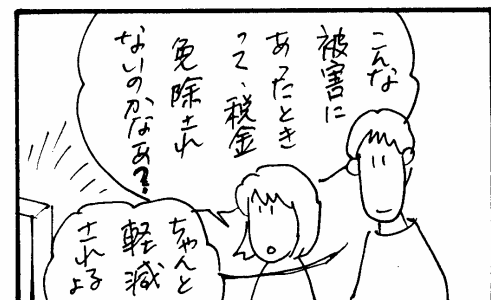 こんな
被害に
あったとき
って、税金
免除され
ないのかなあ?
ちゃんと
軽減
されるよ